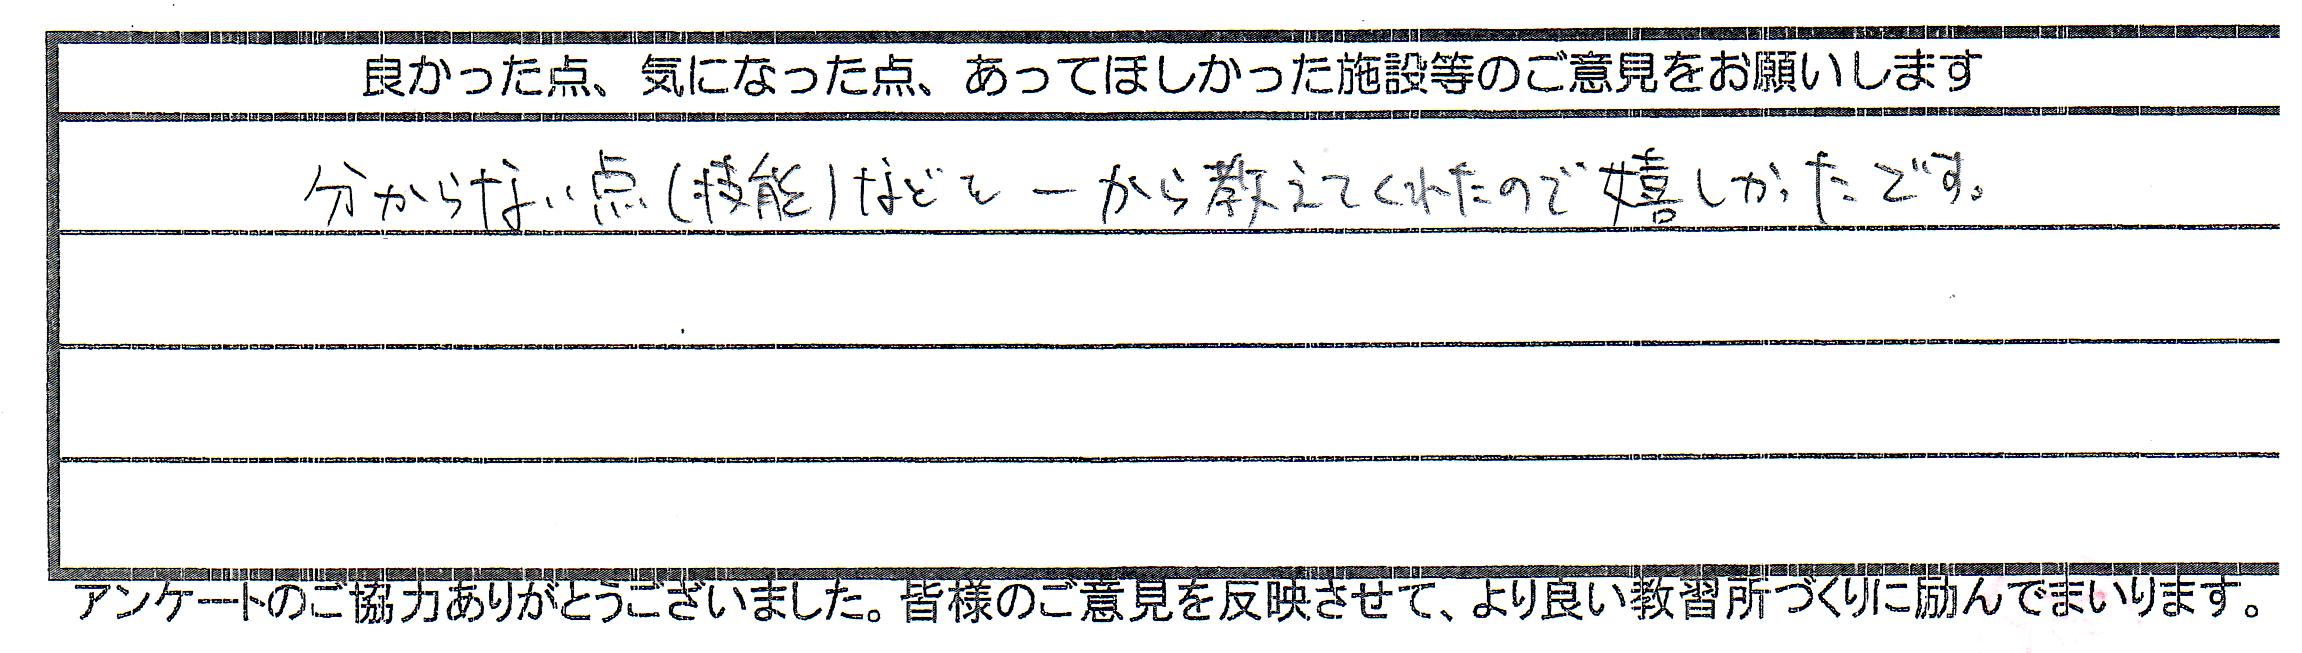 良かった点、気になった点、あってほしかった施設等のご意見をお願いします
分からない点(技能)などを一から教えてくれたので嬉しかったです。
アンケートのご協力ありがとうございました。皆様のご意見を反映させて、より良い教習所づくりに励んでまいります。